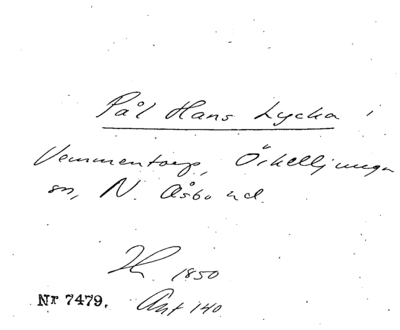 Pål Hans Lycka i
Vemmentorp, Örkelljunga
sn, N. Åsbo hd.
H. 1850
Nr 7479. Ant 140